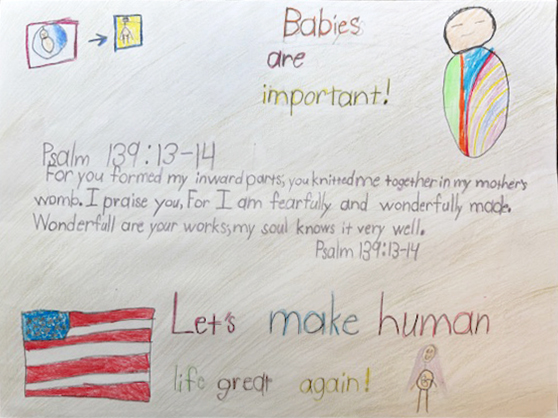 Babies
are
important!
Psalm 139:13-14
For you formed my inward parts; you knitted me together in my mother's
womb. I praise you, For I am fearfully and wonderfully made.
Wonderfull are your works; my soul knows it very well.
Psalm 139:13-14
Let's make human
life great again!